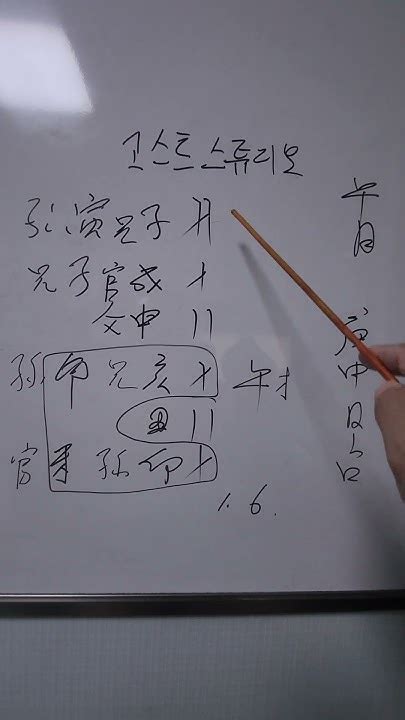 고스트 스튜디오
孙寅兄子
兄子官戌
父申
孙 卯 兄亥 午才
官 孙卯
1. 6.
午月
庚申日占